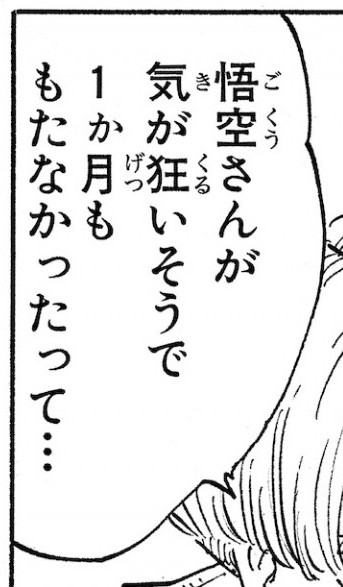 悟空さんが
気が狂いそうで
1か月も
もたなかったって…